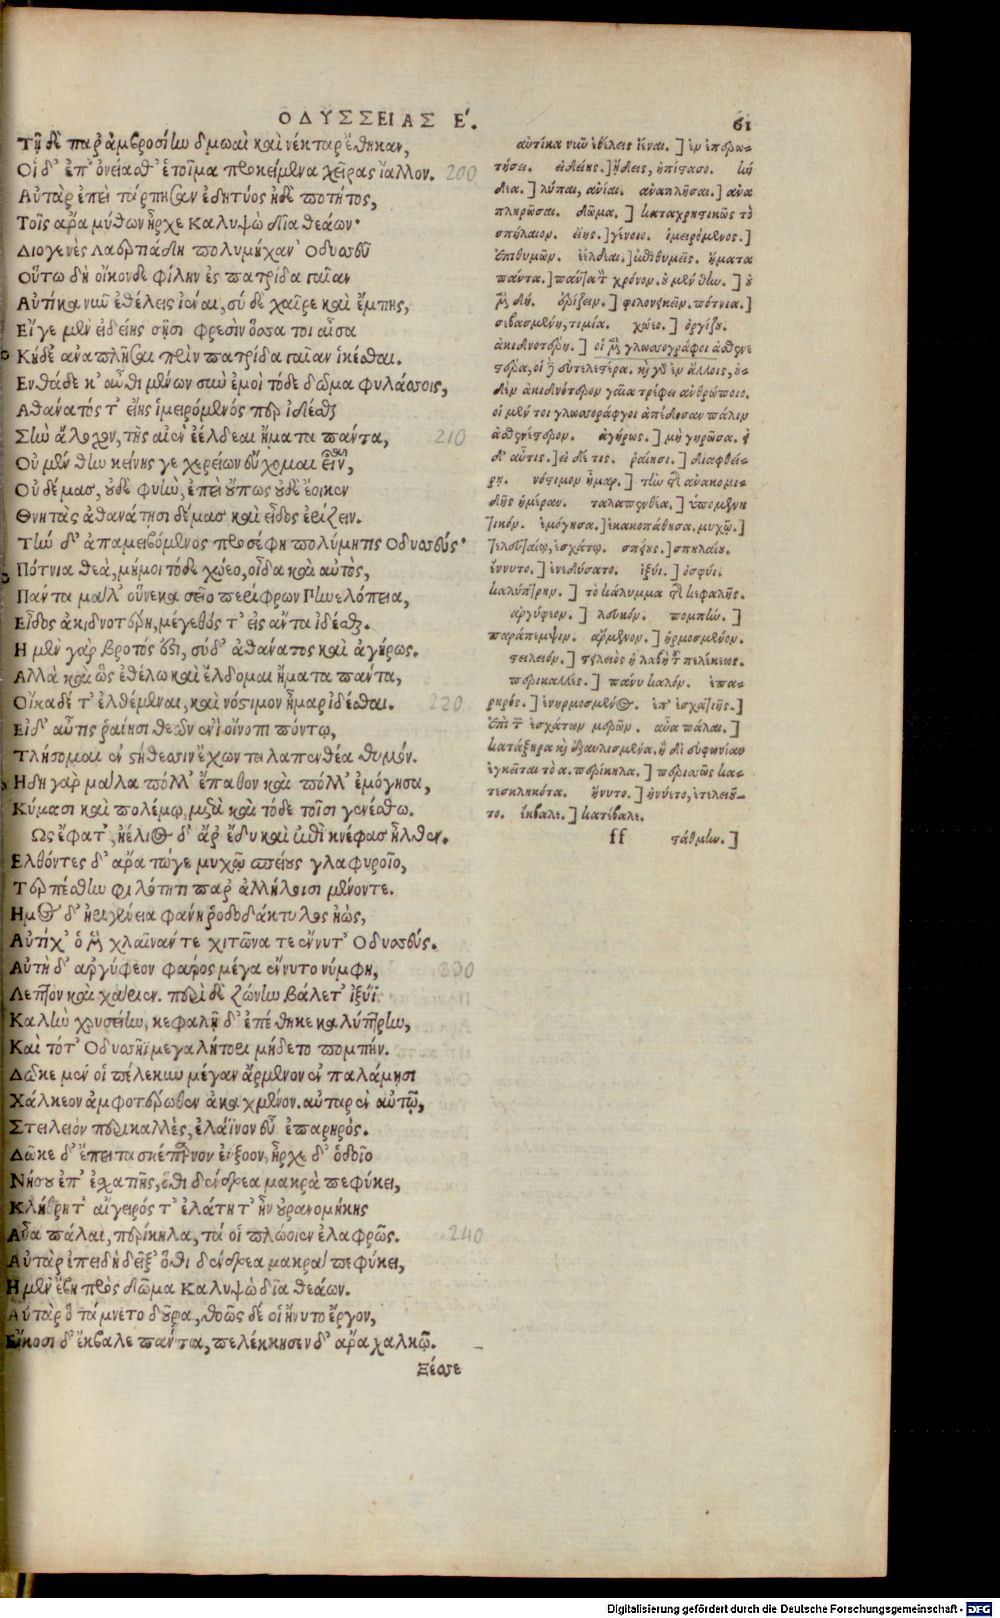 ΟΔΥΣΣΕΙΑΣ Ε΄.
61
Τῇ δὲ παρ' ἀμβροσίην δμωαὶ καὶ νέκταρ ἔθηκαν,
Οἱ δ' ἐπ' ὀνείαθ' ἑτοῖμα προκείμενα χεῖρας ἴαλλον. 200
Αὐτὰρ ἐπεὶ τάρπησαν ἐδητύος ἠδὲ ποτῆτος,
Τοῖς ἄρα μύθων ἦρχε Καλυψὼ δῖα θεάων·
Διογενὲς Λαερτιάδη πολυμήχαν' Οδυσσεῦ
Οὕτω δὴ οἶκονδε φίλην ἐς πατρίδα γαῖαν
Αὐτίκα νῦν ἐθέλεις ἰέναι, σύ δὲ χαῖρε καὶ ἔμπης,
Εἴγε μὲν εἰδείης σῇσι φρεσὶν ὅσσα τοι αἶσα
Κήδε' ἀναπλῆσαι πρὶν πατρίδα γαῖαν ἱκέσθαι.
Ενθάδε κ' αὖθι μένων σὺν ἐμοὶ τόδε δῶμα φυλάσσοις,
Αθανατός τ' εἴης ἱμειρόμενός περ ἰδέσθαι
Σὴν ἄλοχον, τῆς αἰὲν ἐέλδεαι ἤματα πάντα, 210
Οὐ μέν θην κείνης γε χερείων εὔχομαι εἶναι,
Οὐ δέμας, οὐδὲ φυὴν, ἐπεὶ οὔπως οὐδὲ ἔοικεν
Θνητὰς ἀθανάτῃσι δέμας καὶ εἶδος ἐρίζειν.
Τὴν δ' ἀπαμειβόμενος προσέφη πολύμητις Οδυσσεύς·
Πότνια θεὰ, μή μοι τόδε χώεο, οἶδα καὶ αὐτὸς,
Πάντα μάλ' οὕνεκα σεῖο περίφρων Πηνελόπεια,
Εἶδος ἀκιδνοτέρη, μέγεθός τ' εἰς ἄντα ἰδέσθαι.
Η μὲν γὰρ βροτός ἐστι, σύ δ' ἀθάνατος καὶ ἀγήρως.
Αλλὰ καὶ ὣς ἐθέλω καὶ ἐέλδομαι ἤματα πάντα,
Οἴκαδέ τ' ἐλθέμεναι, καὶ νόστιμον ἦμαρ ἰδέσθαι. 220
Εἰ δ' αὖ τις ῥαίησι θεῶν ἐνὶ οἴνοπι πόντῳ,
Τλήσομαι ἐν στήθεσσιν ἔχων ταλαπενθέα θυμόν.
Ηδη γὰρ μάλα πόλλ' ἔπαθον καὶ πόλλ' ἐμόγησα,
Κύμασι καὶ πολέμῳ, μετὰ καὶ τόδε τοῖσι γενέσθω.
Ως ἔφατ', ἠέλιος δ' ἄρ ἔδυ καὶ ἐπὶ κνέφας ἦλθεν.
Ελθόντες δ' ἄρα τώγε μυχῷ σπείους γλαφυροῖο,
Τερπέσθην φιλότητι παρ' ἀλλήλοισι μένοντε.
Ημος δ' ἠριγένεια φάνη ῥοδοδάκτυλος ἠὼς,
Αὐτίχ' ὁ μὲν χλαῖνάν τε χιτῶνα τε ἕννυτ' Οδυσσεύς.
Αὐτὴ δ' ἀργύφεον φᾶρος μέγα ἕννυτο νύμφη, 230
Λεπτὸν καὶ χαρίεν. περὶ δὲ ζώνην βάλετ' ἰξύϊ
Καλὴν χρυσείην, κεφαλῇ δ' ἐπέθηκε καλύπτρην,
Καὶ τότ' Οδυσσῆϊ μεγαλήτορι μήδετο πομπήν.
Δῶκε μέν οἱ πέλεκυν μέγαν ἄρμενον ἐν παλάμῃσι
Χάλκεον ἀμφοτέρωθεν ἀκαχμένον. αὐτὰρ ἐν αὐτῷ,
Στειλειὸν περικαλλὲς, ἐλάϊνον εὖ ἐπαρηρός.
Δῶκε δ' ἔπειτα σκέπαρνον ἐΰξοον, ἦρχε δ' ὁδοῖο
Νήσου ἐπ' ἐσχατιῆς, ὅθι δένδρεα μακρὰ πεφύκει,
Κλήθρη τ' αἴγειρός τ' ἐλάτη τ' ἦν οὐρανομήκης
Αὖα πάλαι, περίκηλα, τά οἱ πλώοιεν ἐλαφρῶς. 240
Αὐτὰρ ἐπειδὴ δεῖξ' ὅθι δένδρεα μακρὰ πεφύκει,
Η μὲν ἔβη πρὸς δῶμα Καλυψὼ δῖα θεάων.
Αὐτὰρ ὃ τάμνετο δοῦρα, θοῶς δέ οἱ ἤνυτο ἔργον,
Εἴκοσι δ' ἔκβαλε πάντα, πελέκκησεν δ' ἄρα χαλκῷ.
Ξέσσε
αὐτίκα νῦν ἐθέλεις ἰέναι.] ἐν ἐπερω-
τήσει. εἰδείης.] ᾔδεις, ἠπίστασο. κή
δεα.] λύπαι, ἀνίαι. ἀναπλῆσαι.] ἀνα
πληρῶσαι. δῶμα.] καταχρηστικῶς τὸ
σπήλαιον. εἴης.] γένοιο. ἱμειρόμενος.]
ἐπιθυμῶν. ἐέλδεαι.] ἐπιθυμεῖς. ἤματα
πάντα.] πάντα τὸν χρόνον. οὐ μέν θην.] οὐ
μὲν δή. ἐρίζειν.] φιλονεικεῖν. πότνια.]
σεβασμένη, τιμία. χώεο.] ὀργίζου.
ἀκιδνοτέρη.] οἱ μὲν γλωσσογράφοι ἀσθενε
στέρα, οἱ δὲ εὐτελεστέρα. καὶ γὰρ ἐν ἄλλοις, οὐ-
δὲν ἀκιδνότερον γαῖα τρέφει ἀνθρώποιο.
οἱ μέν τοι γλωσσογράφοι ἀπέδοσαν πάλιν
ἀσθενέστερον. ἀγήρως.] μὴ γηρῶσα. εἰ
δ' αὖτις.] εἰ δέ τις. ῥαίησι.] διαφθεί-
ρῃ. νόστιμον ἦμαρ.] τὴν τῆς ἀνακομι-
δῆς ἡμέραν. ταλαπενθέα.] ὑπομενη
τικόν. ἐμόγησα.] ἐκακοπάθησα. μυχῷ.]
τελευταίῳ, ἐσχάτῳ. σπείους.] σπηλαίου.
ἕννυτο.] ἐνεδύσατο. ἰξύι.] ὀσφύι.
καλύπτρην.] τὸ κάλυμμα τῆς κεφαλῆς.
ἀργύφεον.] λευκόν. πομπήν.]
παράπεμψιν. ἄρμενον.] ἡρμοσμένον.
στειλειόν.] στελεὸς ἡ λαβὴ τοῦ πελέκεως.
περικαλλές.] πάνυ καλόν. ἐπα-
ρηρός.] ἐνηρμοσμένος. ἐπ' ἐσχατιῆς.]
ἐπὶ τῶν ἐσχάτων μερῶν. αὖα πάλαι.]
ἔγκειται τὸ α. περίκηλα.] περισσῶς κα-
τεσκληκότα. ἤνυτο.] ἠνύετο, ἐτελειοῦ-
το. ἔκβαλε.] κατέβαλε.
ff στάθμην.]
Digitalisierung gefördert durch die Deutsche Forschungsgemeinschaft - DFG